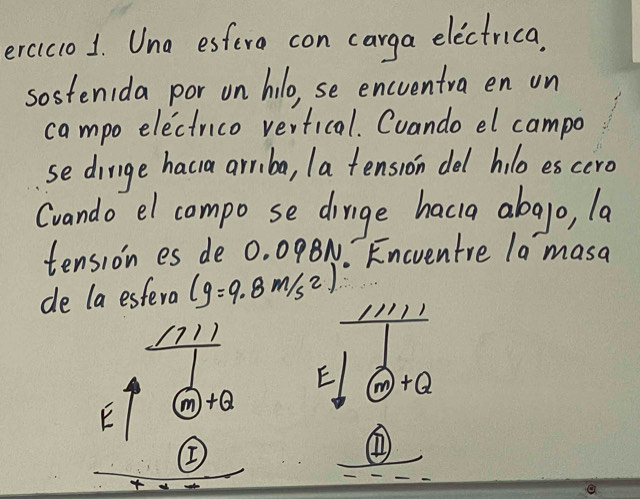 ercicio 1. Una esfera con carga eléctrica.
sostenida por un hilo, se encuentra en un
campo eléctrico vertical. Cuando el campo
se dirige hacia arriba, la tensión del hilo es cero
Cuando el campo se dirige hacia abajo, la
tensión es de 0.098N. Encuentre la masa
de la esfera (g=9.8 m/s²).
E m +Q E m +Q
I II
+ + + - - - -